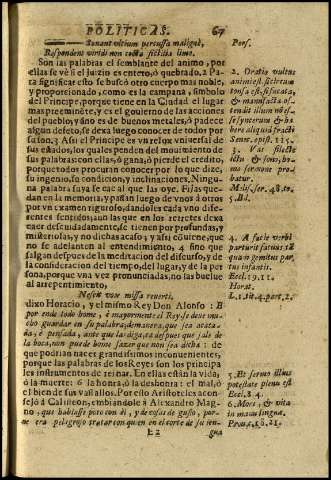 POLITICAS. 67
Sonant vitium percussa maligné,
Respondent viridi non cocta fidelia limo.
Son las palabras el semblante del animo, por
ellas se vè si el juizio es entero, ò quebrado. 2 Pa-
ra significar esto se buscò otro cuerpo mas noble,
y proporcionado, como es la campana, simbolo
del Principe, porque tiene en la Ciudad el lugar
mas preeminẽte, y es el govierno de las acciones
del pueblo, y sino es de buenos metales, ò padece
algun defeto, se dexa luego conocer de todos por
su son. 3 Assi el Principe es vn relox vniversal de
sus estados, los quales penden del movimiento de
sus palabras; con ellas, ò gana, ò pierde el credito,
porque todos procuran conocer por lo que dize,
su ingenio, su condicion, y inclinaciones. Ningu-
na palabra suya se cae al que las oye. Fixas que-
dan en la memoria, y passan luego de vnos à otros
por vn examen riguroso, dandoles cada vno dife-
rentes sentidos; aun las que en los retretes dexa
caer descuidadamente, se tienen por profundas, y
misteriosas, y no dichas acaso; y assi cõviene, que
no se adelanten al entendimiento, 4 sino que
salgan despues de la meditacion del discurso, y de
la consideracion del tiempo, del lugar, y de la per-
sona, porque vna vez pronunciadas, no las buelve
al arrepentimiento,
Nescit vox missa reverti,
dixo Horacio, y el mismo Rey Don Alonso: E
por ende todo home, è mayormente el Rey se deve mu-
cho guardar en su palabra; demanera, que sea acata-
da, è pensada, ante que la diga, ca despues que sale de
la boca, non puede home fazer que non sea dicha: de
que podrian nacer grandissimos inconvenientes,
porque las palabras de los Reyes son los principa-
les instrumentos de reinar. En ellas estàn la vida,
ò la muerte: 6 la honra, ò la deshonra: el mal, ò
el bien de sus vassallos. Por esso Aristoteles acon-
sejò à Calistenes, embiandole à Alexandro Mag-
no, que hablasse poco con èl, y de cosas de gusto, por-
ne era peligroso tratar con quien en el corte de su len-
E 2 gua
Pers.
2. Oratio vultus
animi est, si circum
tonsa est, si fucata,
& manufacta os-
tendit illum non es-
se syncerum & ha-
bere aliquid fracti
Senec. epist. 115.
3. Vas fictile
ictu & sono, ho-
mo sermone pro-
batur.
5. Bil.
4. A facie verbi
parturit fatuus tã
quam gemitus par-
tus infantis.
Eccl. 19. 11.
Horat.
L. 2. tit. 4. part. 2.
5. Et sermo illius
potestate plenus est
Eccl. 8 4.
6. Mors, & vita
in manu linguæ.
Prov. 18. 21.